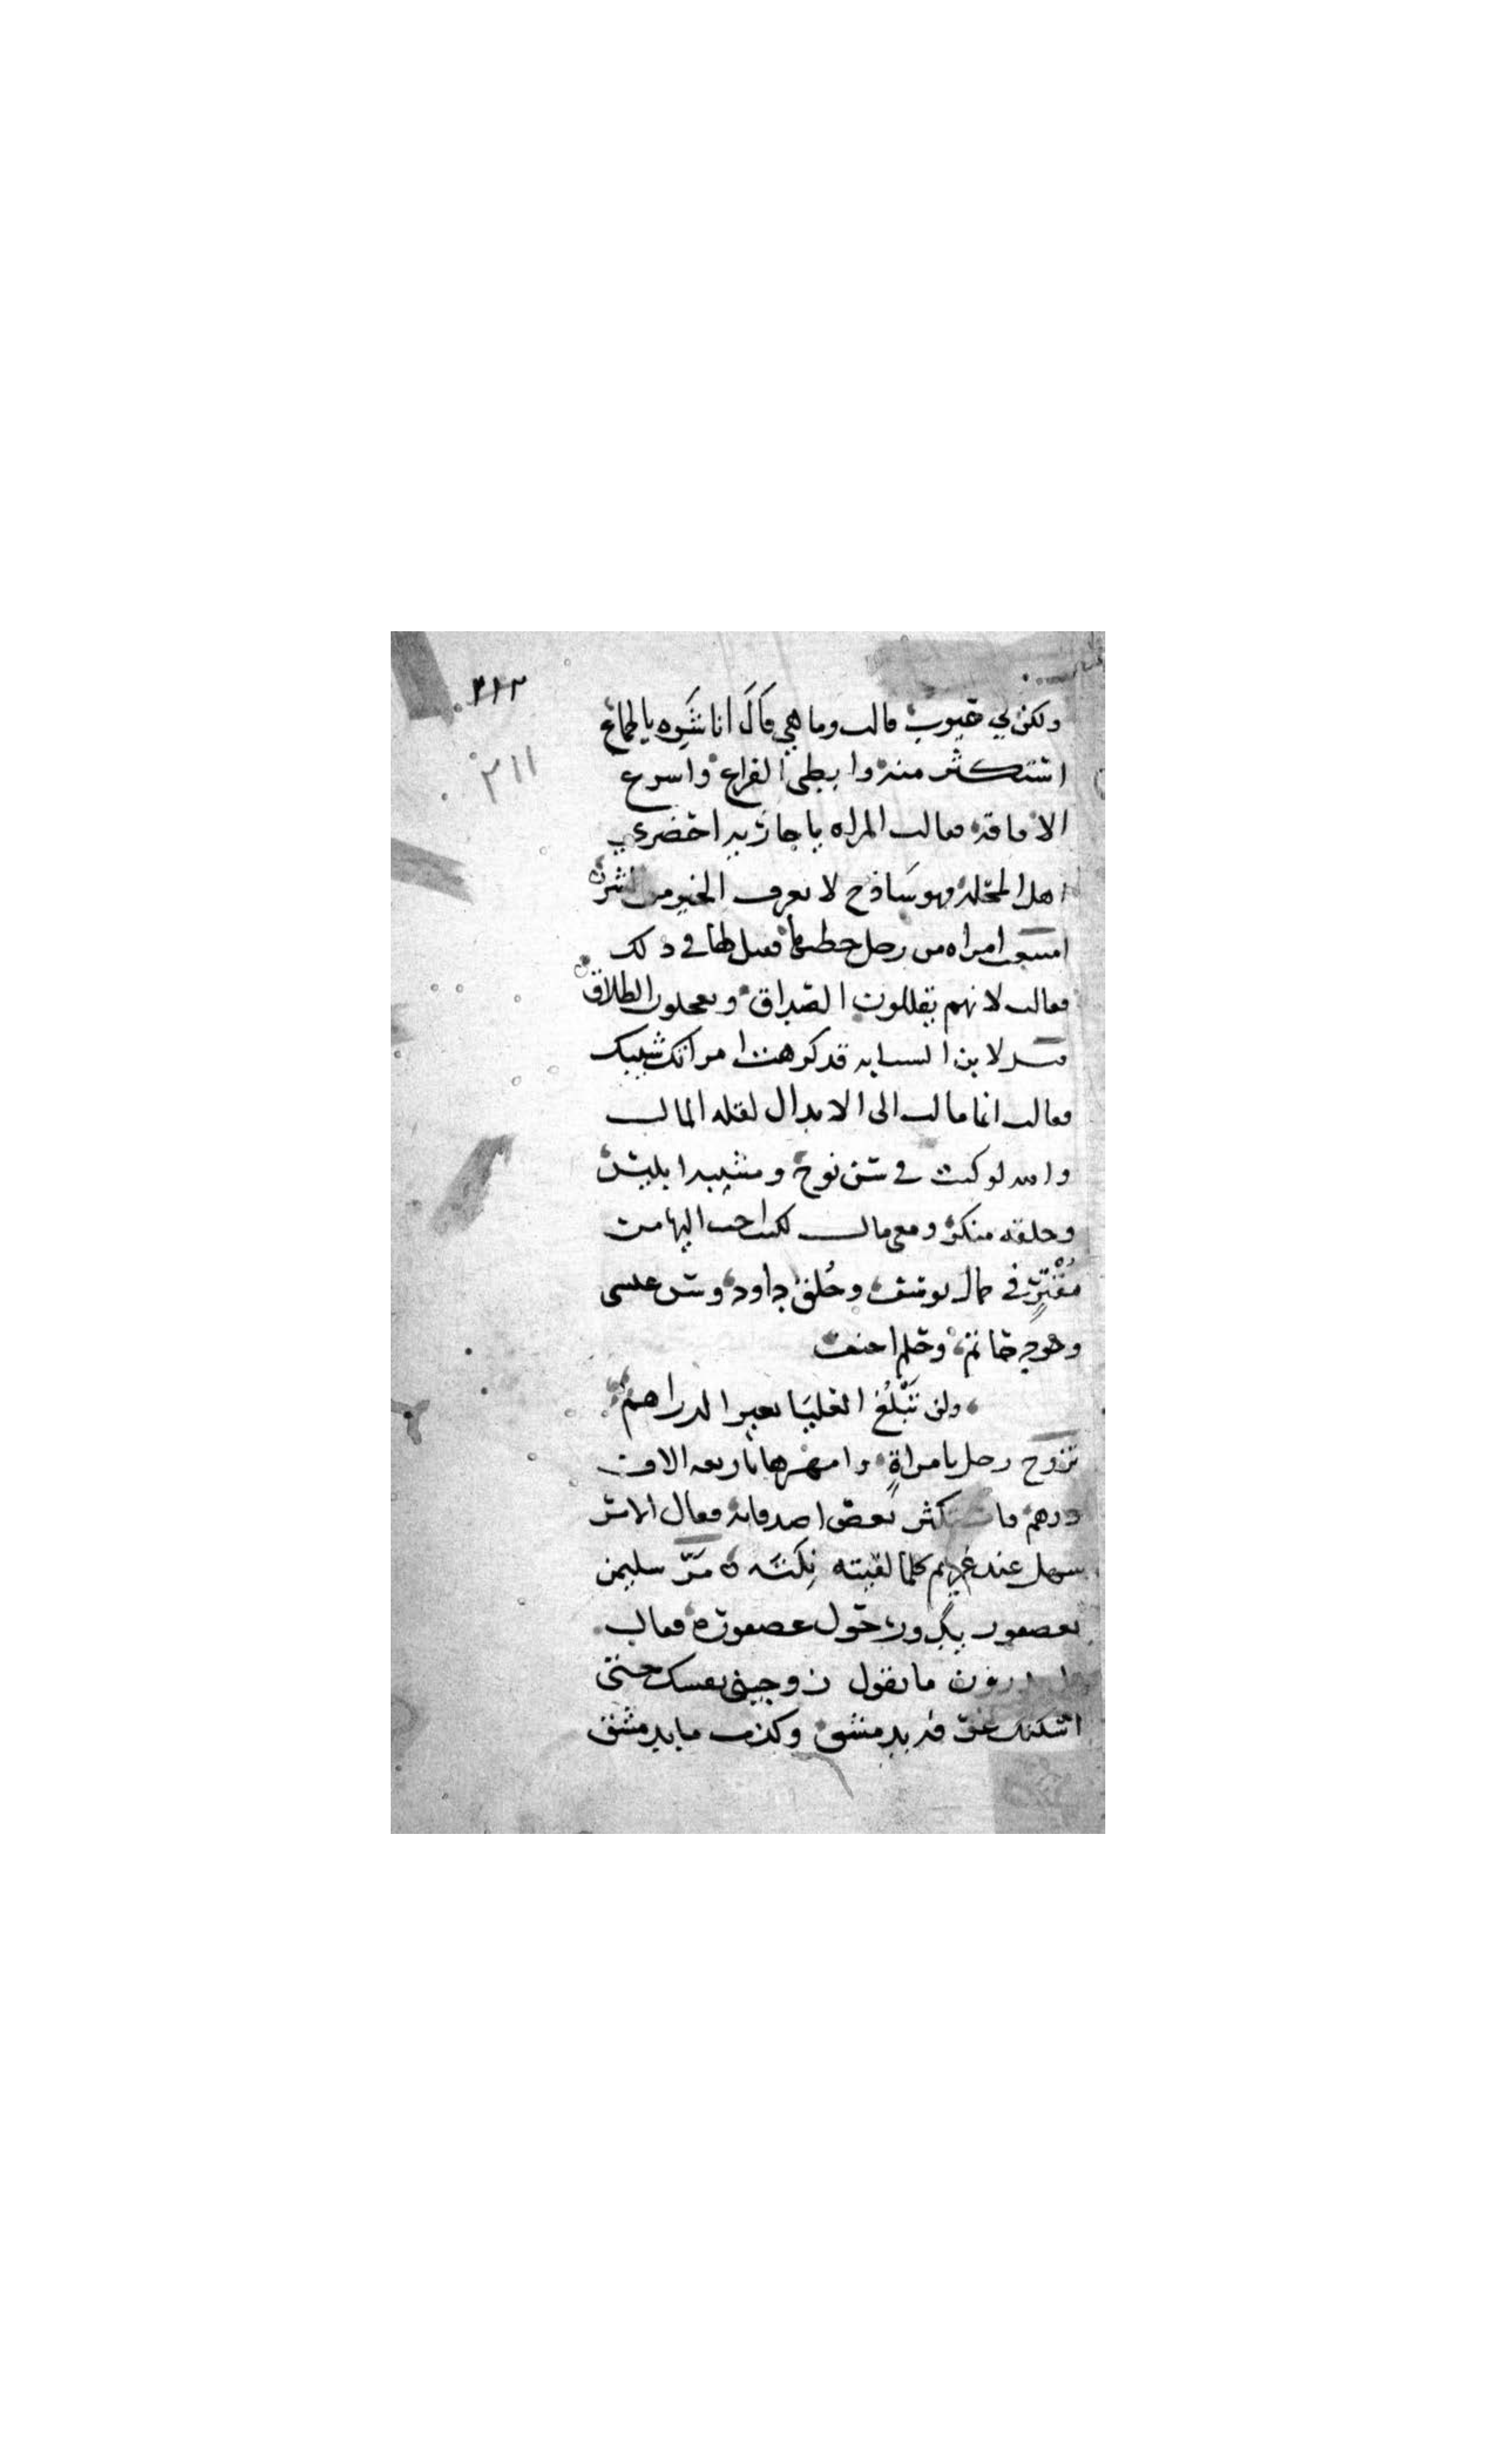 ٣١٢
٢١١
ولكن لي عيوب قالت وما هي قال انا شره بالجماع
استكثر منه وابطى الفراغ واسرع
الافاقه فقالت المراه يا جاريه احضري
اهل المحله فهو ساذج لا يعرف الخير من الشر
امتنعت امراه من رجل خطبها فقيل لها في ذلك
فقالت لانهم يقللون الصداق ويعجلون الطلاق
قيل لابن السبابه قد كرهت امراتك شيبك
فقال انما مالت الى الابدال لقله المال
والله لو كنت في سن نوح وشيبه ابليس
وخلقه منكر ومعي مال لكنت احب اليها من
مُقْتِرٍ في جمال يوسف وخُلق داود وسن عيسى
وجود حاتم وحلم احنف
ولن تَبْلُغ العليا بغير الدراهم
تزوج رجل بامراةٍ وامهرها باربعه الاف
درهم فاستكثر بعض اصدقائه فقال الامر
سهل عند غريم كلما لقيته نِكْتَه ٥ مَرّ سليمن
بعصفور يدور حول عصفوره فقال
هل تدرون ما يقول زوجيني نفسك حتى
اسكنك غرفه بدمشق وكذب ما بدمشق